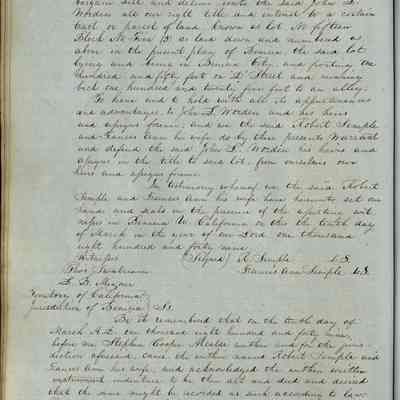 bargain sell and deliver unto the said John L.
Worden all our right title and interest to a certain
tract or parcel of land known as Lot No fifteen
Block No Five as laid down and numbered as
above in the present plan of Benicia, the said lot
lying and being in Benicia City and fronting one
hundred and fifty feet on D Street and running
back one hundred and twenty five feet to an alley.
To have and to hold with all the appurtenances
and advantages to John L. Worden and his heirs
and assigns forever and we the said Robert Semple
and Frances Ann his wife do by these presents Warrant
and defend the said John L. Worden his heirs and
assigns in the title to said lot, from ourselves our
heirs and assigns forever.
In testimony whereof we the said Robert
Semple and Frances Ann his wife have hereunto set our
hands and seals in the presence of the subscribing wit
nesses in Benicia U. California on this the tenth day
of March in the year of our Lord one thousand
eight hundred and forty nine
Witness (Signed) R. Semple L.S.
Frances Ann Semple L.S.
Territory of California
Jurisdiction of Benicia Ss.
Be it remembered that on the tenth day of
March A.D. one thousand eight hundred and forty nine,
before me Stephen Cooper Alcalde within and for the juris-
diction aforesaid came the within named Robert Semple and
Frances Ann his wife, and acknowledged the within written
indenture to be their act and deed and desired
that the same might be recorded as such according to law